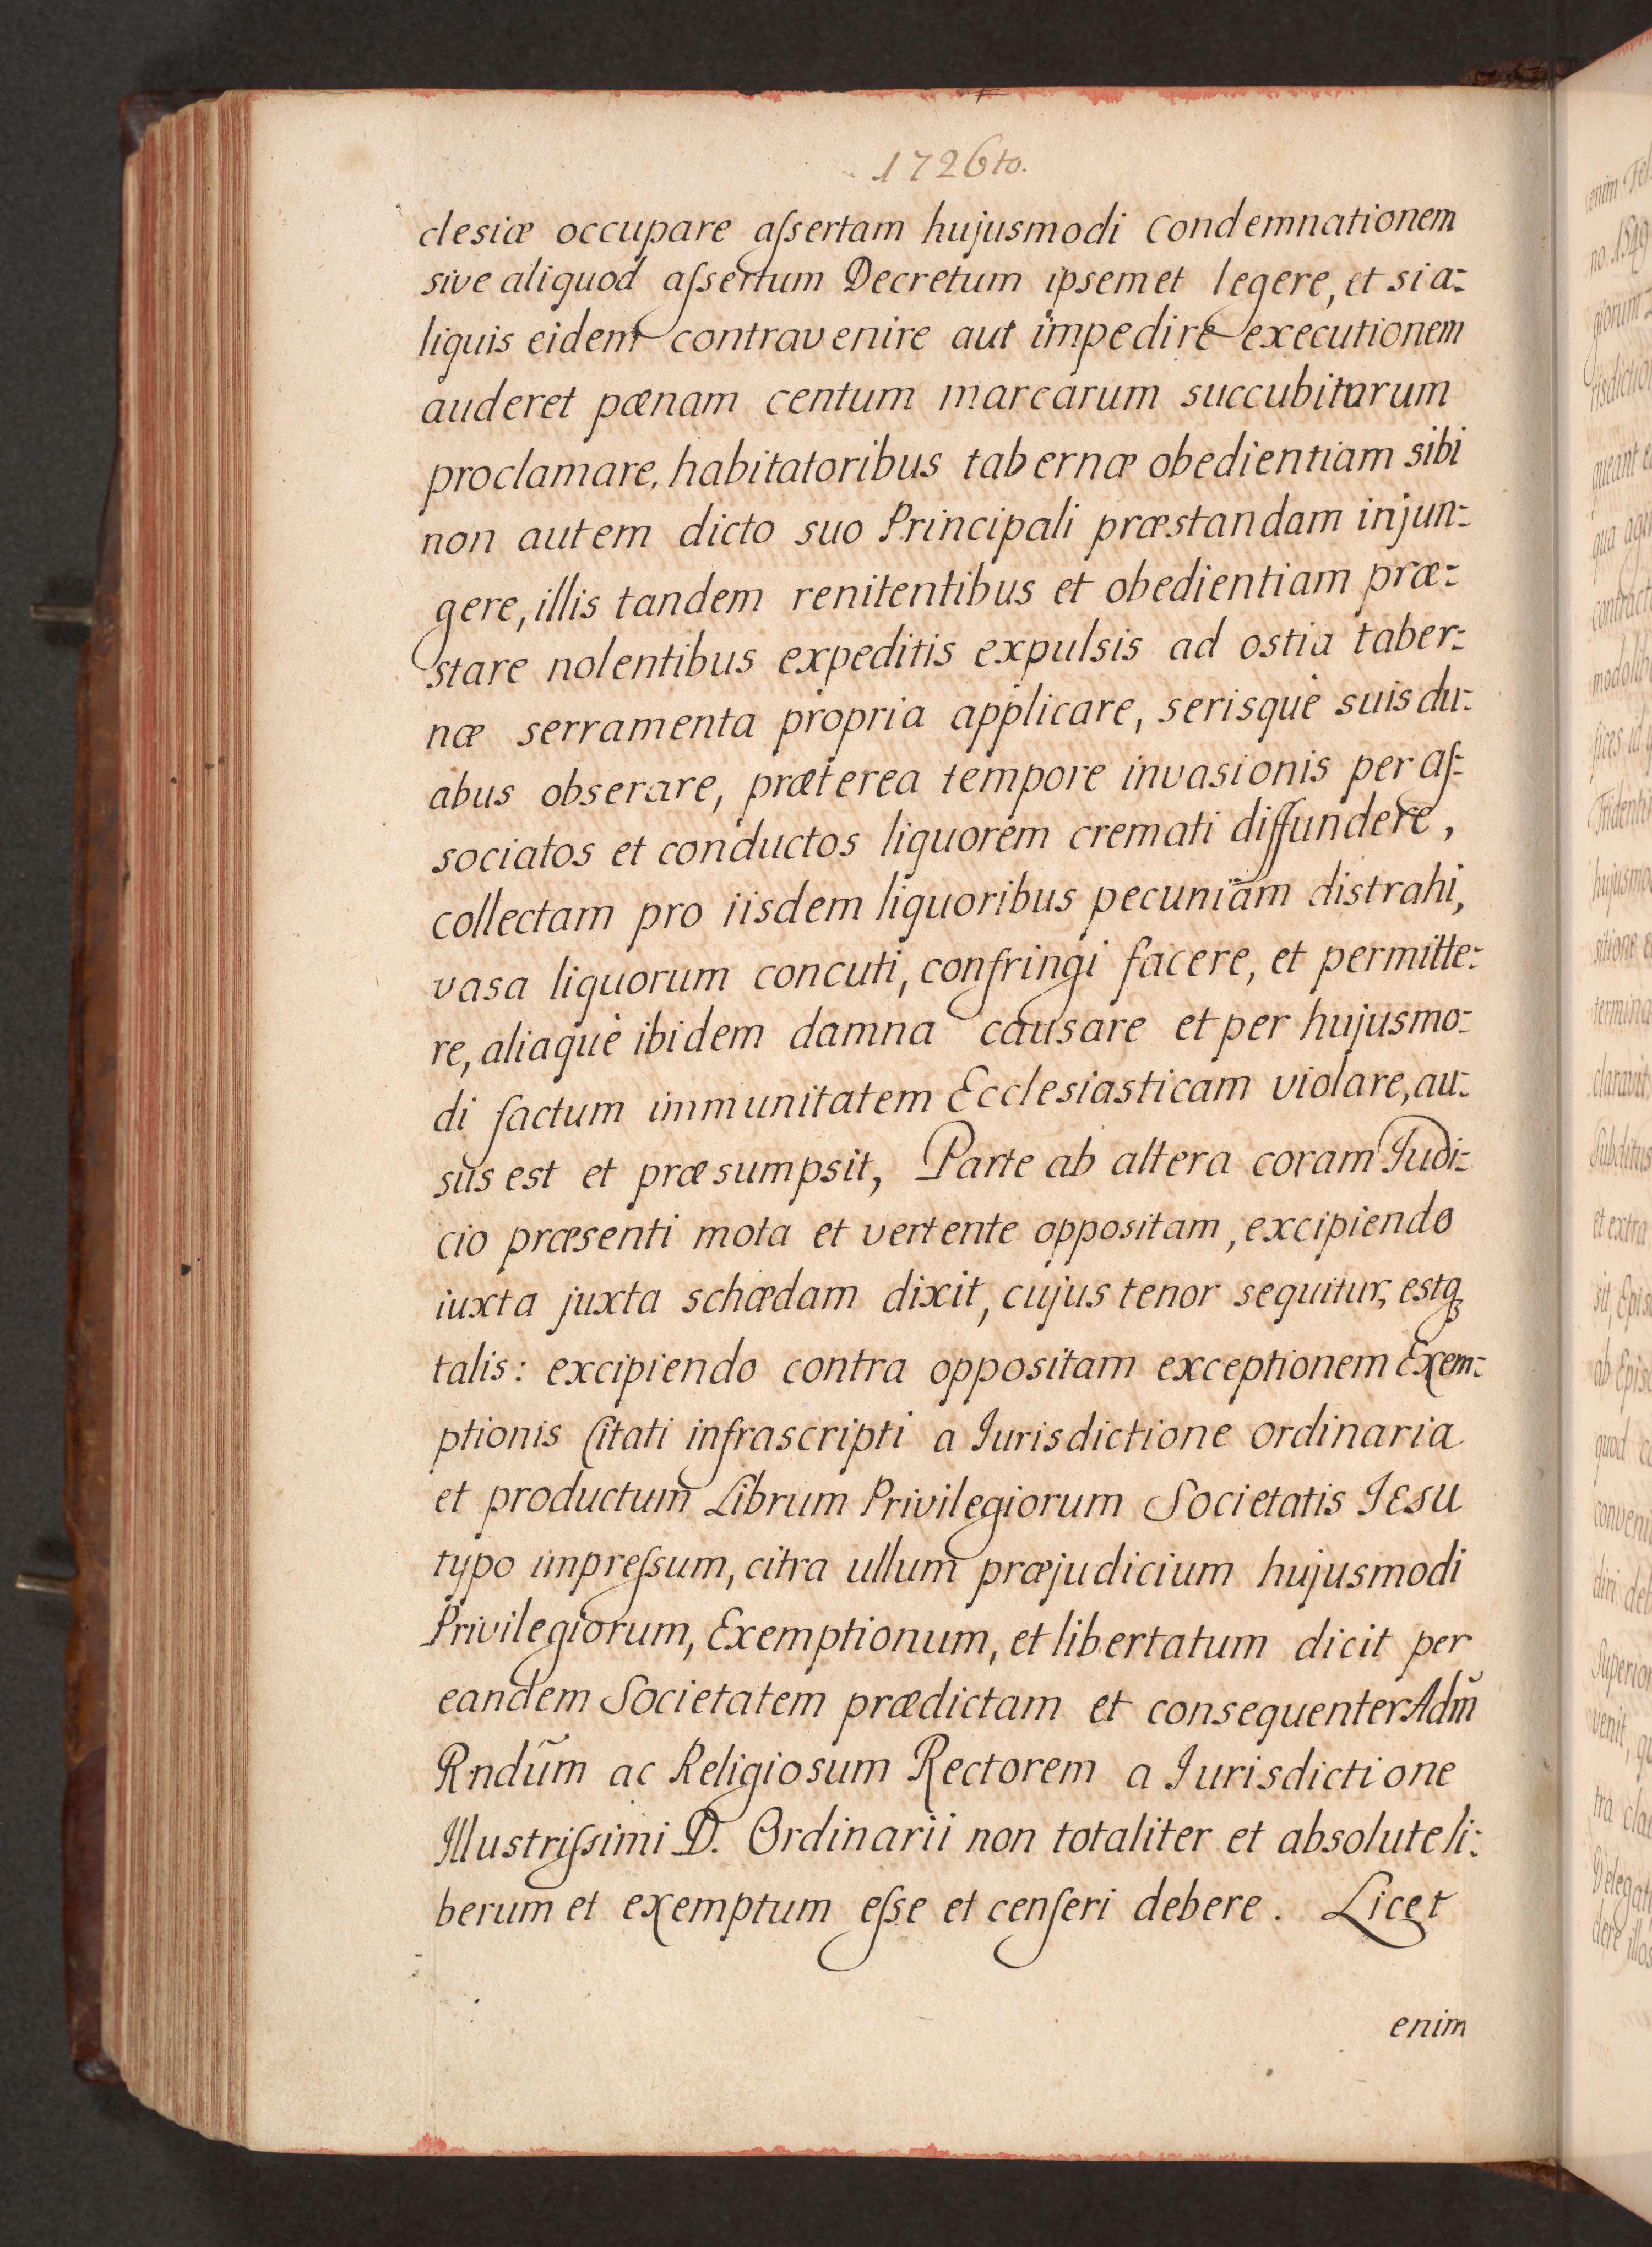 1726to.
clesiæ occupare aſsertam hujusmodi Condemnationem
sive aliquod aſsertum Decretum ipsemet legere, et si a:
liquis eidem contravenire aut impedire executionem
auderet pœnam centum marcarum succubiturum
proclamare, habitatoribus tabernæ obedientiam sibi
non autem dicto suo Principali præstandam injun:
gere, illis tandem renitentibus et obedientiam præ:
stare nolentibus expeditis expulsis ad ostia taber:
næ serramenta propria applicare, serisquè suis du:
abus obserare, præterea tempore invasionis per aſ:
sociatos et conductos liquorem cremati diffundere,
collectam pro iisdem liquoribus pecuniam distrahi,
vasa liquorum concuti, confringi facere, et permitte:
re, aliaquè ibidem damna causare et per hujusmo:
di factum immunitatem Ecclesiasticam violare, au:
sus est et præsumpsit, Parte ab altera coram Judi:
cio præsenti mota et vertente oppositam, excipiendo
iuxta juxta schædam dixit, cujus tenor sequitur, estqꝫ
talis: excipiendo contra oppositam exceptionem Exem:
ptionis Citati infrascripti a Jurisdictione ordinaria
et productum Librum Privilegiorum Societatis JESU
typo impreſsum, citra ullum præjudicium hujusmodi
Privilegiorum, Exemptionum, et libertatum dicit per
eandem Societatem prædictam et consequenter Adm̃
Rndũm ac Religiosum Rectorem a Jurisdictione
Illustriſsimi D. Ordinarii non totaliter et absolute li:
berum et exemptum eſse et cenſeri debere. Licet
enim